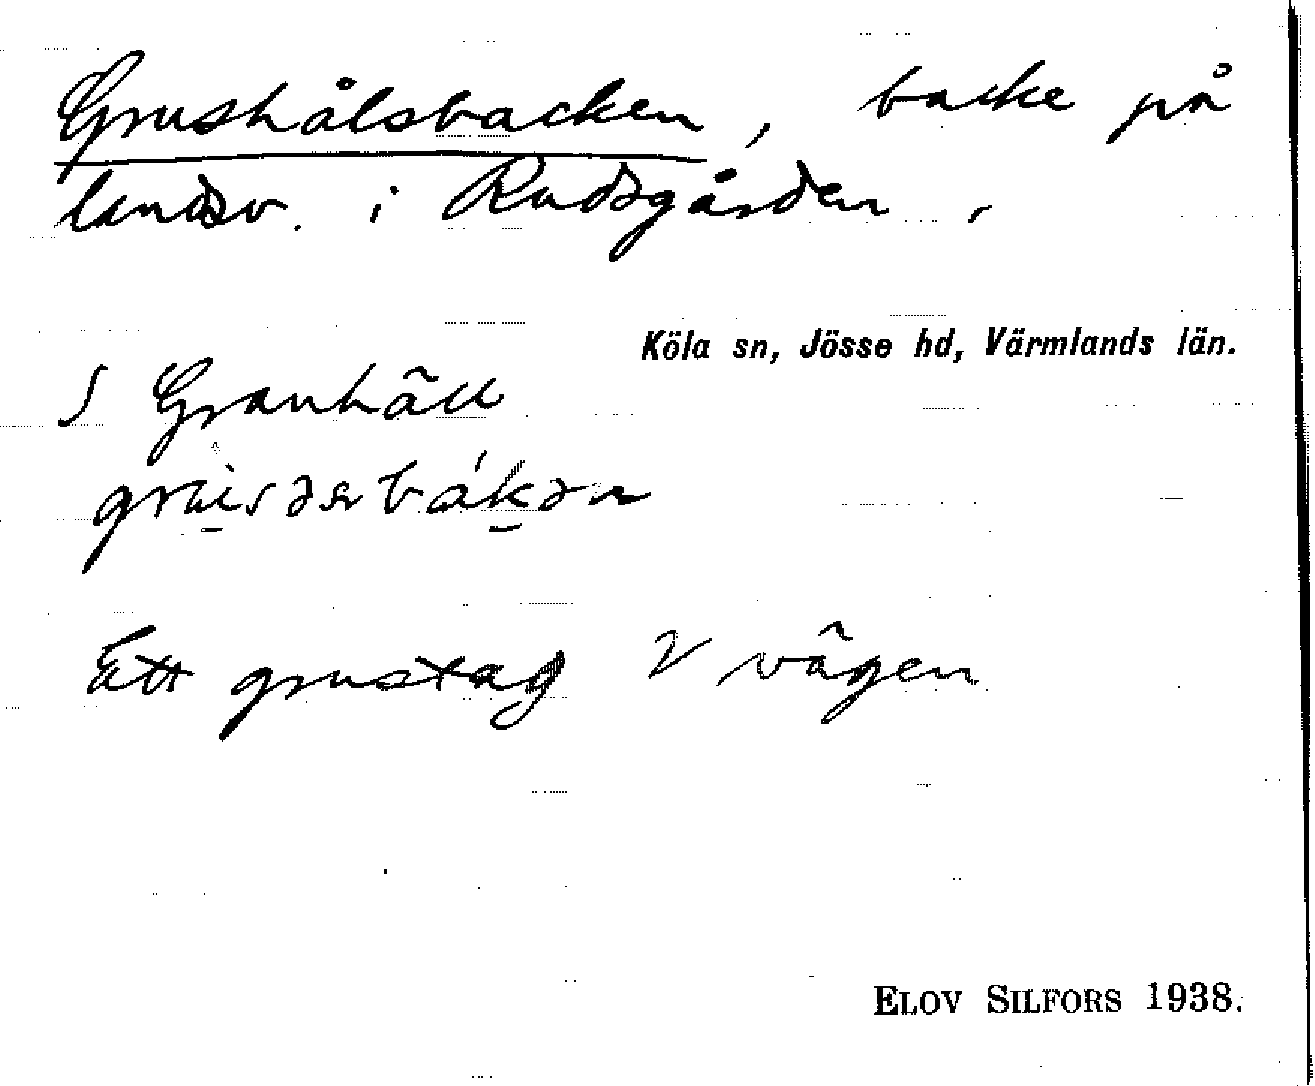 Grushålsbacken, backe på
landsv. i Rudsgården,
Köla sn, Jösse hd, Värmlands län.
S Granhäll
Ett grustag V vägen
ELOV SILFORS 1938.